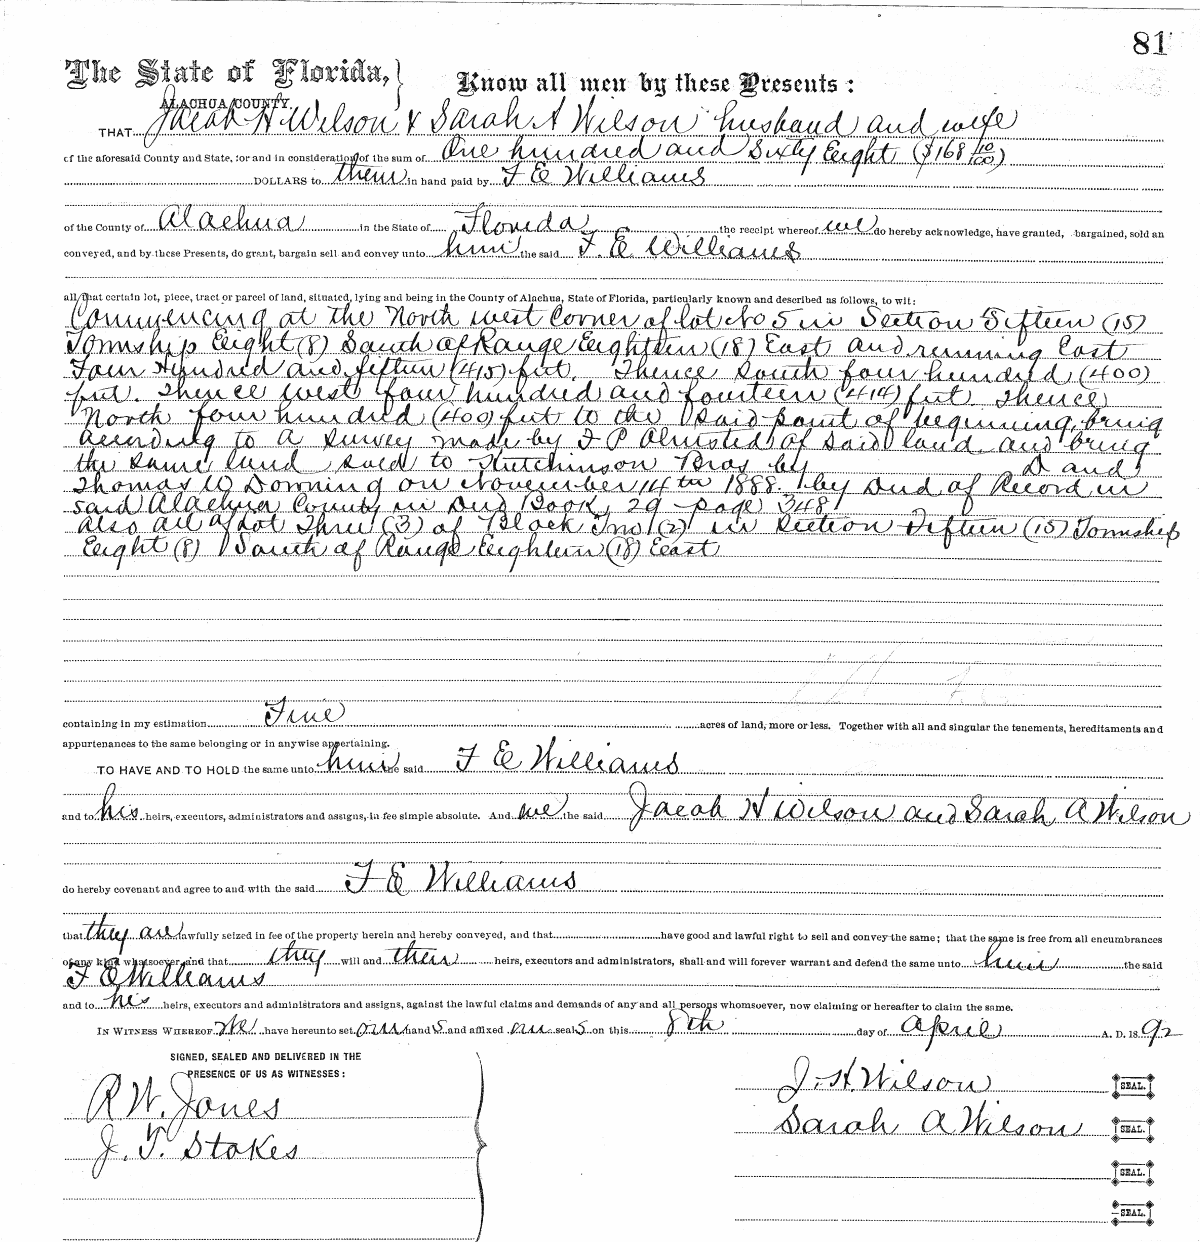 81
The State of Florida,
ALACHUA COUNTY.
Know all men by these Presents:
THAT Jacob H Wilson & Sarah A Wilson husband and wife
of the aforesaid County and State, for and in consideration of the sum of One hundred and Sixty Eeight ($168 10/100)
DOLLARS to them in hand paid by F E Williams
of the County of Alachua in the State of Florida the receipt whereof we do hereby acknowledge, have granted, bargained, sold an
conveyed, and by these Presents, do grant, bargain sell and convey unto him the said F. E. Williams
all that certain lot, piece, tract or parcel of land, situated, lying and being in the County of Alachua, State of Florida, particularly known and described as follows, to wit:
Commencing at the North west Corner of lot No 5 in Section Fifteen (15)
Township Eeight (8) South of Range Eeighteen (18) East and running East
Four Hundred and fifteen (415) feet. Thence South four hundred (400)
feet. Thence west four hundred and fourteen (414) feet. Thence
North four hundred (400) feet to the said point of beginning, being
according to a survey made by F P Olmsted of said land and being
the same land sold to Hutchinson Bros by D and
Thomas W Downing on November 14th 1888. by Deed of Record in
said Alachua County in Deed Book 29 page 348
also all of Lot Three (3) of Block Two (2) in Section Fifteen (15) Township
Eeight (8) South of Range Eeighteen (18) East
containing in my estimation Five acres of land, more or less. Together with all and singular the tenements, hereditaments and
appurtenances to the same belonging or in anywise appertaining.
TO HAVE AND TO HOLD the same unto him the said F E Williams
and to his heirs, executors, administrators and assigns, in fee simple absolute. And we the said Jacob H Wilson and Sarah A Wilson
do hereby covenant and agree to and with the said F E Williams
that they are lawfully seized in fee of the property herein and hereby conveyed, and that have good and lawful right to sell and convey the same; that the same is free from all encumbrances
of any kind whatsoever, and that they will and their heirs, executors and administrators, shall and will forever warrant and defend the same unto him the said
F E Williams
and to his heirs, executors and administrators and assigns, against the lawful claims and demands of any and all persons whomsoever, now claiming or hereafter to claim the same.
IN WITNESS WHEREOF We have hereunto set our hand s and affixed our seal s on this 8th day of April A. D. 18 92
SIGNED, SEALED AND DELIVERED IN THE
PRESENCE OF US AS WITNESSES:
R W. Jones
J. T. Stokes
J. H. Wilson SEAL.
Sarah A Wilson SEAL.
SEAL.
SEAL.